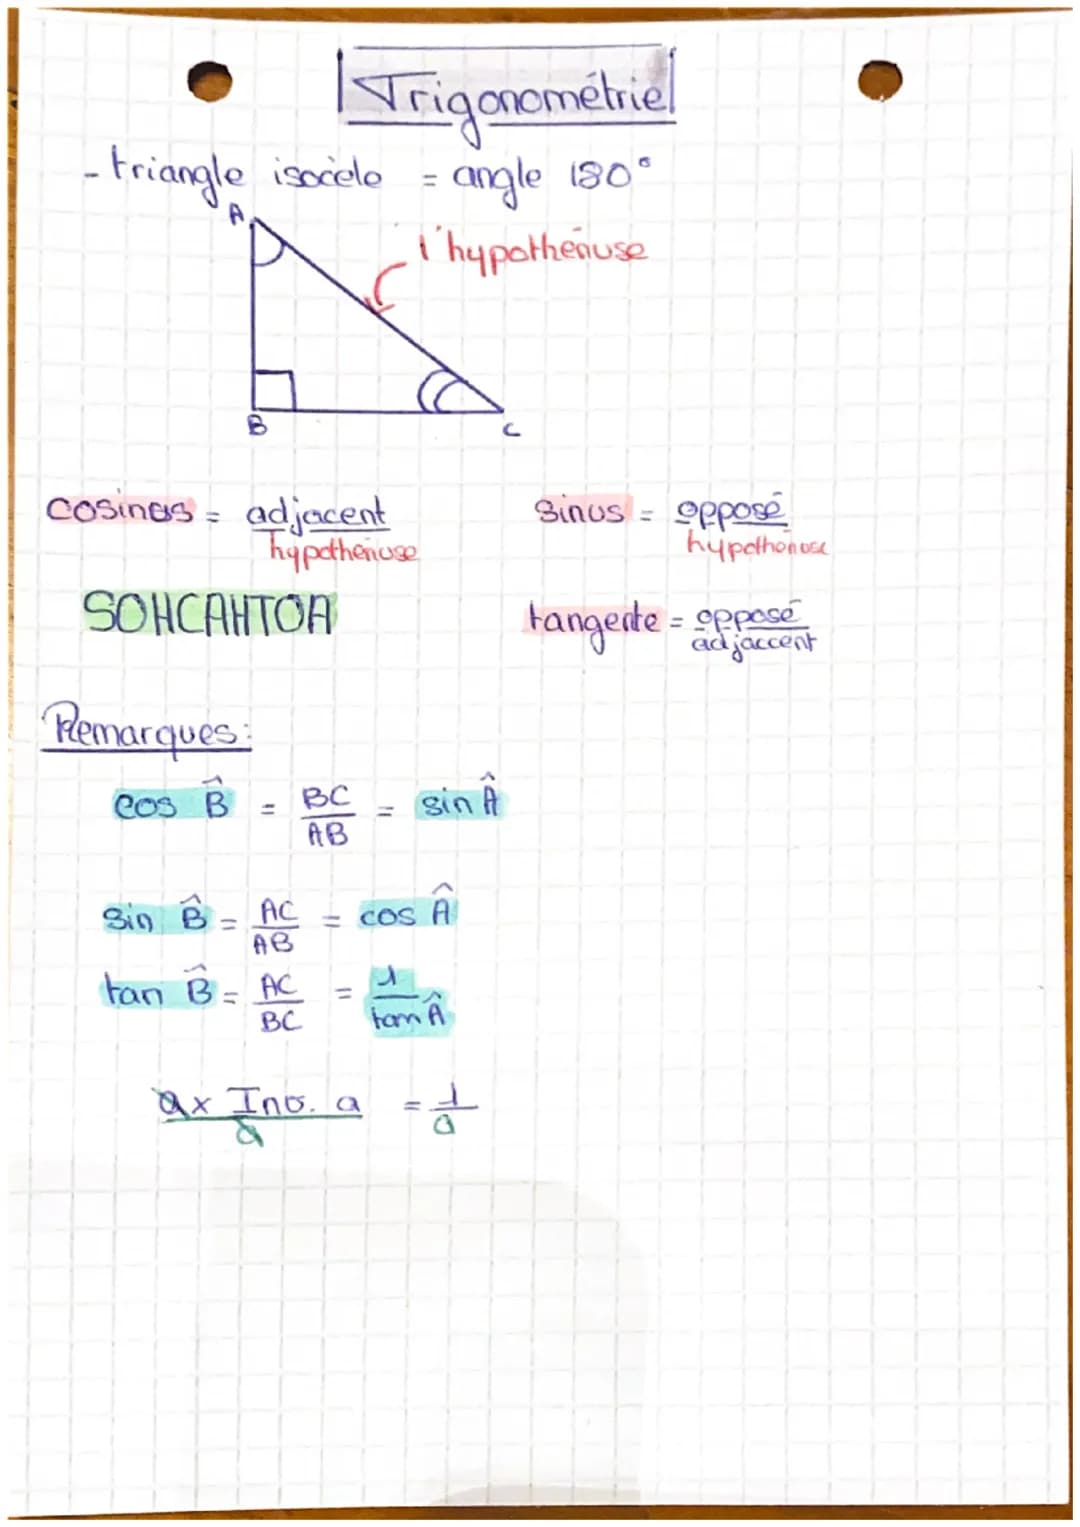 Trigonométrie
- triangle isocèle = angle 180°
A
l'hypothénuse
B
C
Cosinus = adjacent
hypothénuse
Sinus = opposé
hypothénuse
SOHCAHTOA
tangente = opposé
adjaccent
Remarques:
cos B̂ = BC = sin Â
AB
sin B̂ = AC = cos Â
AB
tan B̂ = AC = 1
BC tan Â
a x Inv. a = 1
a a